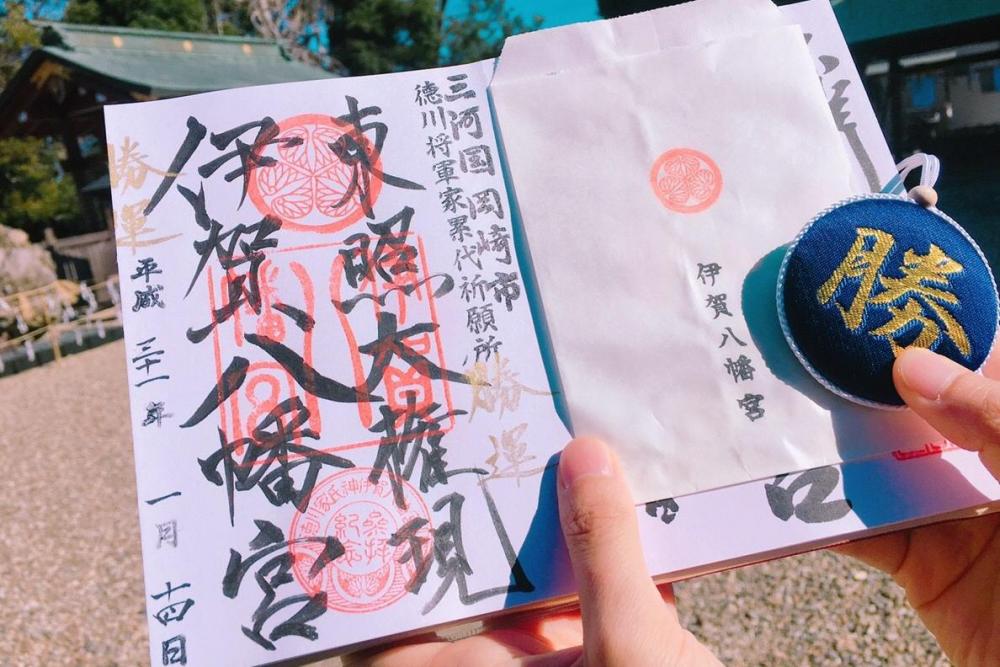 三河国岡崎市
徳川将軍家累代祈願所
勝運
東照大権現
伊賀八幡宮
参拝
紀念
勝運
平成三十一年一月十四日
伊賀八幡宮
勝